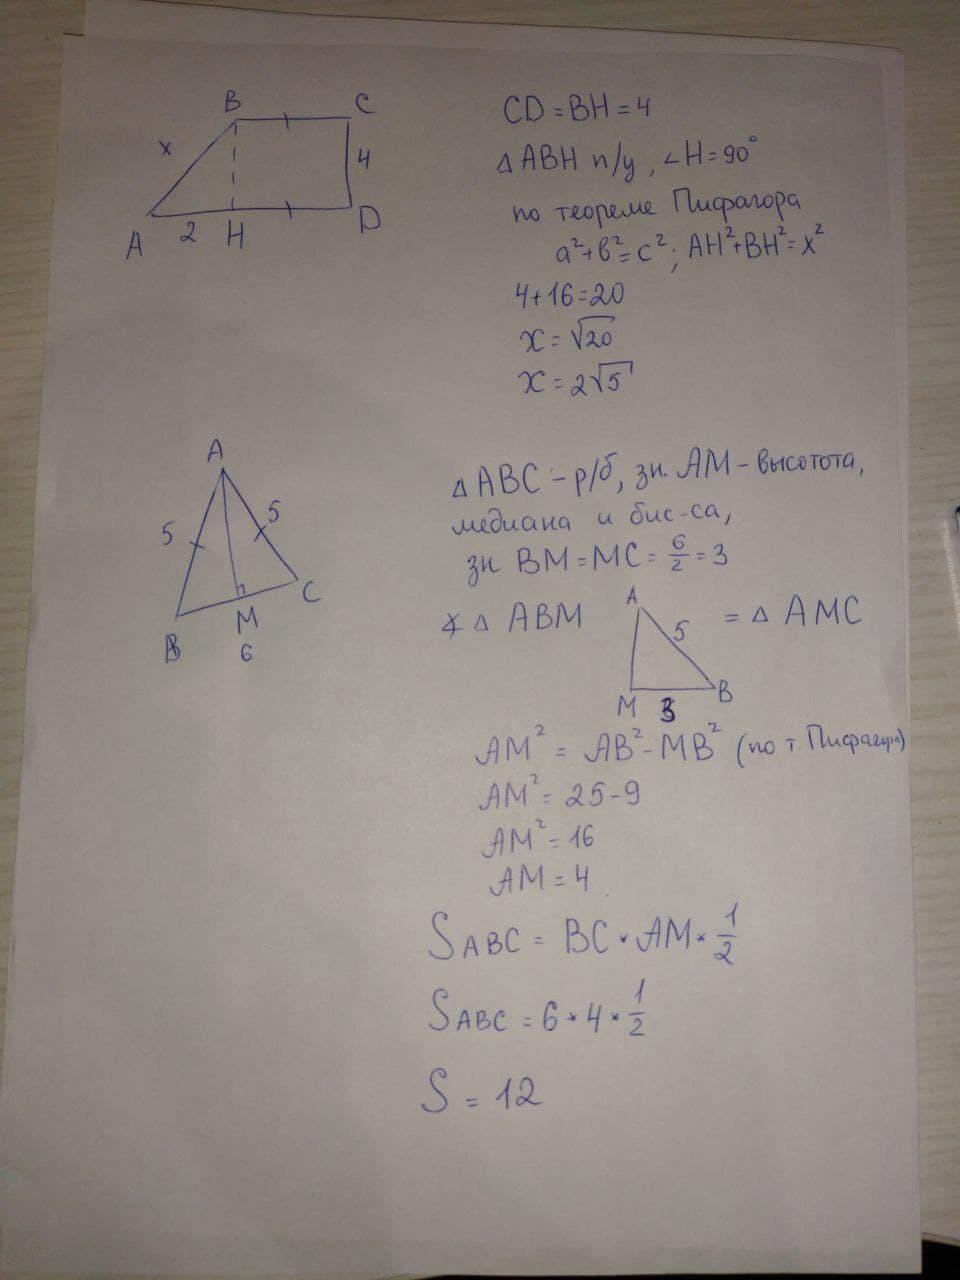 B
C
x
4
A
2
H
D
CD = BH = 4
△ ABH п/у, ∠H = 90°
по теореме Пифагора
a² + b² = c²; AH² + BH² = x²
4 + 16 = 20
x = √20
x = 2√5
A
5
5
C
M
B
6
△ ABC - р/б, зн. AM - высотота,
медиана и бис-са,
зн BM = MC = 6/2 = 3
∢ △ ABM
A
5
= △ AMC
M
3
B
AM² = AB² - MB² (по т. Пифагора)
AM² = 25 - 9
AM² = 16
AM = 4
S ABC = BC * AM * 1/2
S ABC = 6 * 4 * 1/2
S = 12